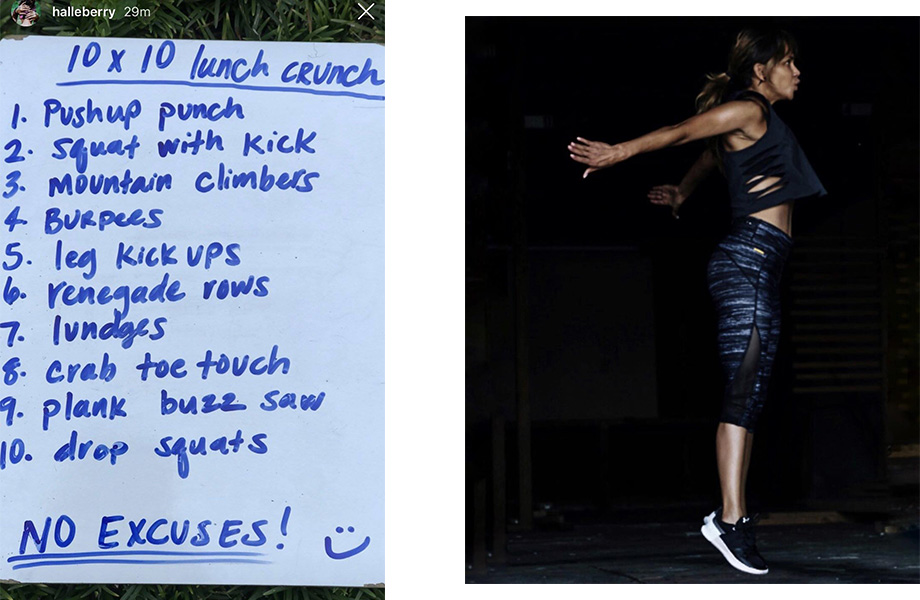 halleberry 29m
10 x 10 lunch crunch
1. Pushup punch
2. squat with kick
3. mountain climbers
4. Burpees
5. leg kick ups
6. renegade rows
7. lundges
8. crab toe touch
9. plank buzz saw
10. drop squats
NO EXCUSES!